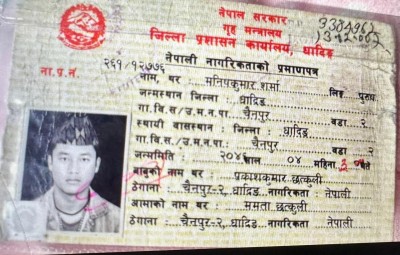 नेपाल सरकार
गृह मन्त्रालय
जिल्ला प्रशासन कार्यालय, धादिङ
नेपाली नागरिकताको प्रमाणपत्र
ना.प्र.न. २६१/१२७७६
नाम, थर : मनिषकुमार शर्मा लिङ्ग पुरुष
जन्मस्थान जिल्ला : धादिङ
गा.वि.स/उ.म.न.पा. : चैनपुर वडा २
स्थायी बासस्थान : जिल्ला : धादिङ
गा.वि.स./उ.म.न.पा. : चैनपुर वडा २
जन्ममिति : २०४१ साल ०४ महिना ३ गते
बाबुको नाम थर : प्रकाशकुमार छत्कुली
ठेगाना : चैनपुर-२, धादिङ नागरिकता : नेपाली
आमाको नाम थर : ममता छत्कुली
ठेगाना : चैनपुर-२, धादिङ नागरिकता : नेपाली